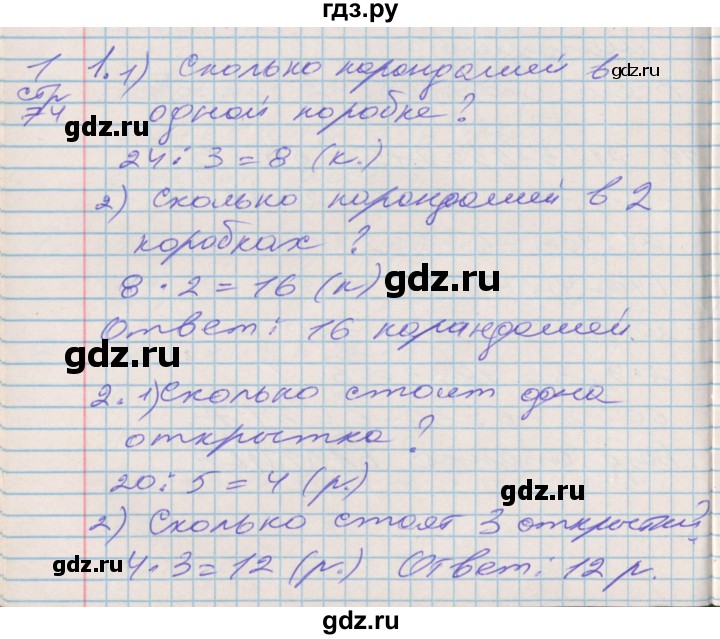 гдз.ру
1 1. 1) Сколько карандашей в
gdz.ru
стр 74 одной коробке?
gdz.ru
24 : 3 = 8 (к.)
2) Сколько карандашей в 2
коробках?
8 · 2 = 16 (к)
gdz.ru
Ответ: 16 карандашей.
gdz.ru
2. 1) Сколько стоит одна
открытка?
20 : 5 = 4 (р.)
gdz.ru
2) Сколько стоят 3 открытки?
4 · 3 = 12 (р.) Ответ: 12 р.
gdz.ru
gdz.ru
gdz.ru